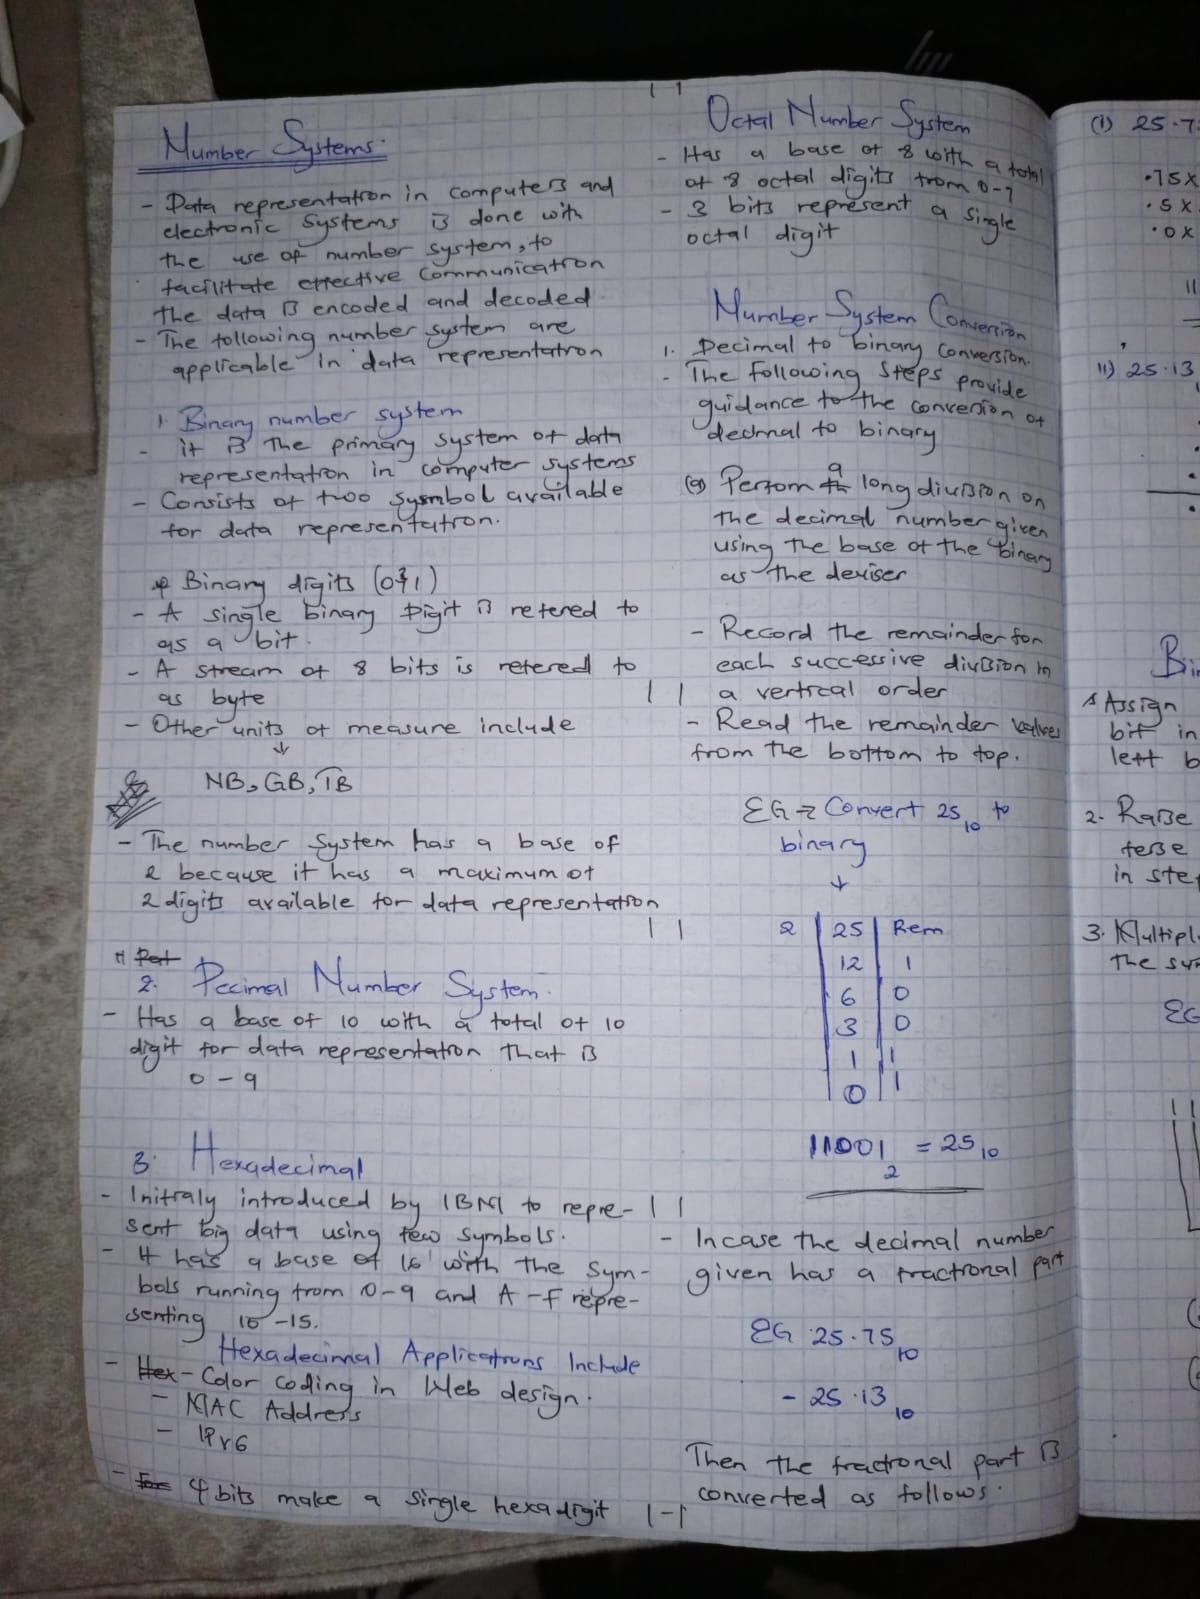 Number Systems.
- Data representation in computers and
electronic systems is done with
the use of number system, to
facilitate effective communication
the data is encoded and decoded.
- The following number system are
applicable in data representation
1. Binary number system
- it is the primary system of data
representation in computer systems
- Consists of two sysmbol available
for data representation.
Binary digits (0 & 1)
- A single binary Digit is refered to
as a bit.
- A stream of 8 bits is refered to
as byte
- Other units of measure include
↓
MB, GB, TB
- The number system has a base of
2 because it has a maximum of
2 digits available for data representation
2. Decimal Number System.
- Has a base of 10 with a total of 10
digit for data representation that is
0 - 9
3. Hexadecimal
- Initialy introduced by IBM to repre-
sent big data using few symbols.
- It has a base of 16 with the sym-
bols running from 0-9 and A-F repre-
senting 10-15.
Hexadecimal Applications Include
- Hex - Color coding in Web design.
- MAC Address
- IPv6
- 4 bits make a single hexadigit
Octal Number System
- Has a base of 8 with a total
of 8 octal digits from 0-7
- 3 bits represent a single
octal digit
Number System Conversion
1. Decimal to binary conversion.
- The following steps provide
guidance to the conversion of
decimal to binary
(a) Perform a long division on
the decimal number given
using the base of the binary
as the deviser
- Record the remainder for
each successive division in
a vertical order
- Read the remainder values
from the bottom to top.
EG → Convert 25₁₀ to
binary
↓
2 | 25 | Rem
12 | 1
6 | 0
3 | 0
1 | 1
0 | 1
11001₂ = 25₁₀
- Incase the decimal number
given has a fractional part
EG 25.75₁₀
- 25.13₁₀
Then the fractional part is
converted as follows.
(i) 25.7
.75 x
.5 x
.0 x
11
ii) 25.13
Bin
1 Assign
bit in
left b
2. Raise
these
in step
3. Multipl
the su
EG